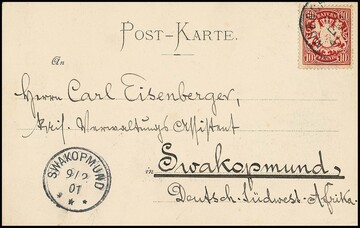 BAYERN
10
10
PFENNIG
POST-KARTE.
An
Herrn Carl Eisenberger,
Kais. Verwaltungs Assistent
in Swakopmund,
Deutsch-Südwest-Afrika.
SWAKOPMUND
9/2
01